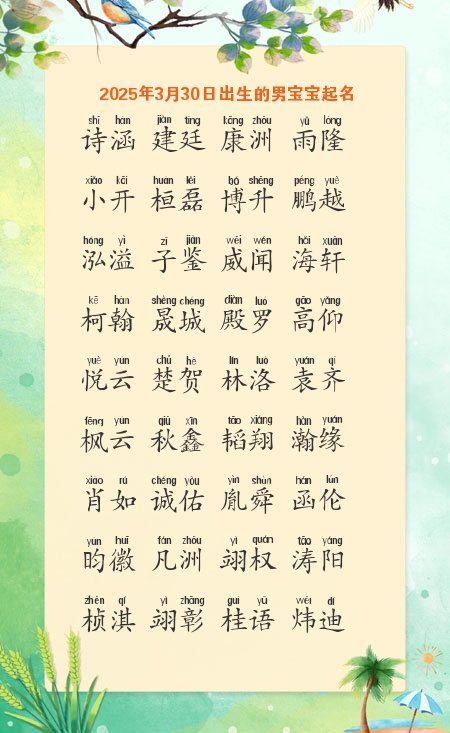 2025年3月30日出生的男宝宝起名
shī hán jiàn tíng kāng zhōu yǔ lóng
诗涵 建廷 康洲 雨隆
xiǎo kāi huán lěi bó shēng péng yuè
小开 桓磊 博升 鹏越
hóng yì zǐ jiàn wēi wén hǎi xuān
泓溢 子鉴 威闻 海轩
kē hàn shèng chéng diàn luó gāo yǎng
柯翰 晟城 殿罗 高仰
yuè yún chǔ hè lín luò yuán qí
悦云 楚贺 林洛 袁齐
fēng yún qiū xīn tāo xiáng hàn yuán
枫云 秋鑫 韬翔 瀚缘
xiāo rú chéng yòu yìn shùn hán lún
肖如 诚佑 胤舜 函伦
yún huī fán zhōu yì quán tāo yáng
昀徽 凡洲 翊权 涛阳
zhēn qí yì zhāng guì yǔ wěi dí
桢淇 翊彰 桂语 炜迪